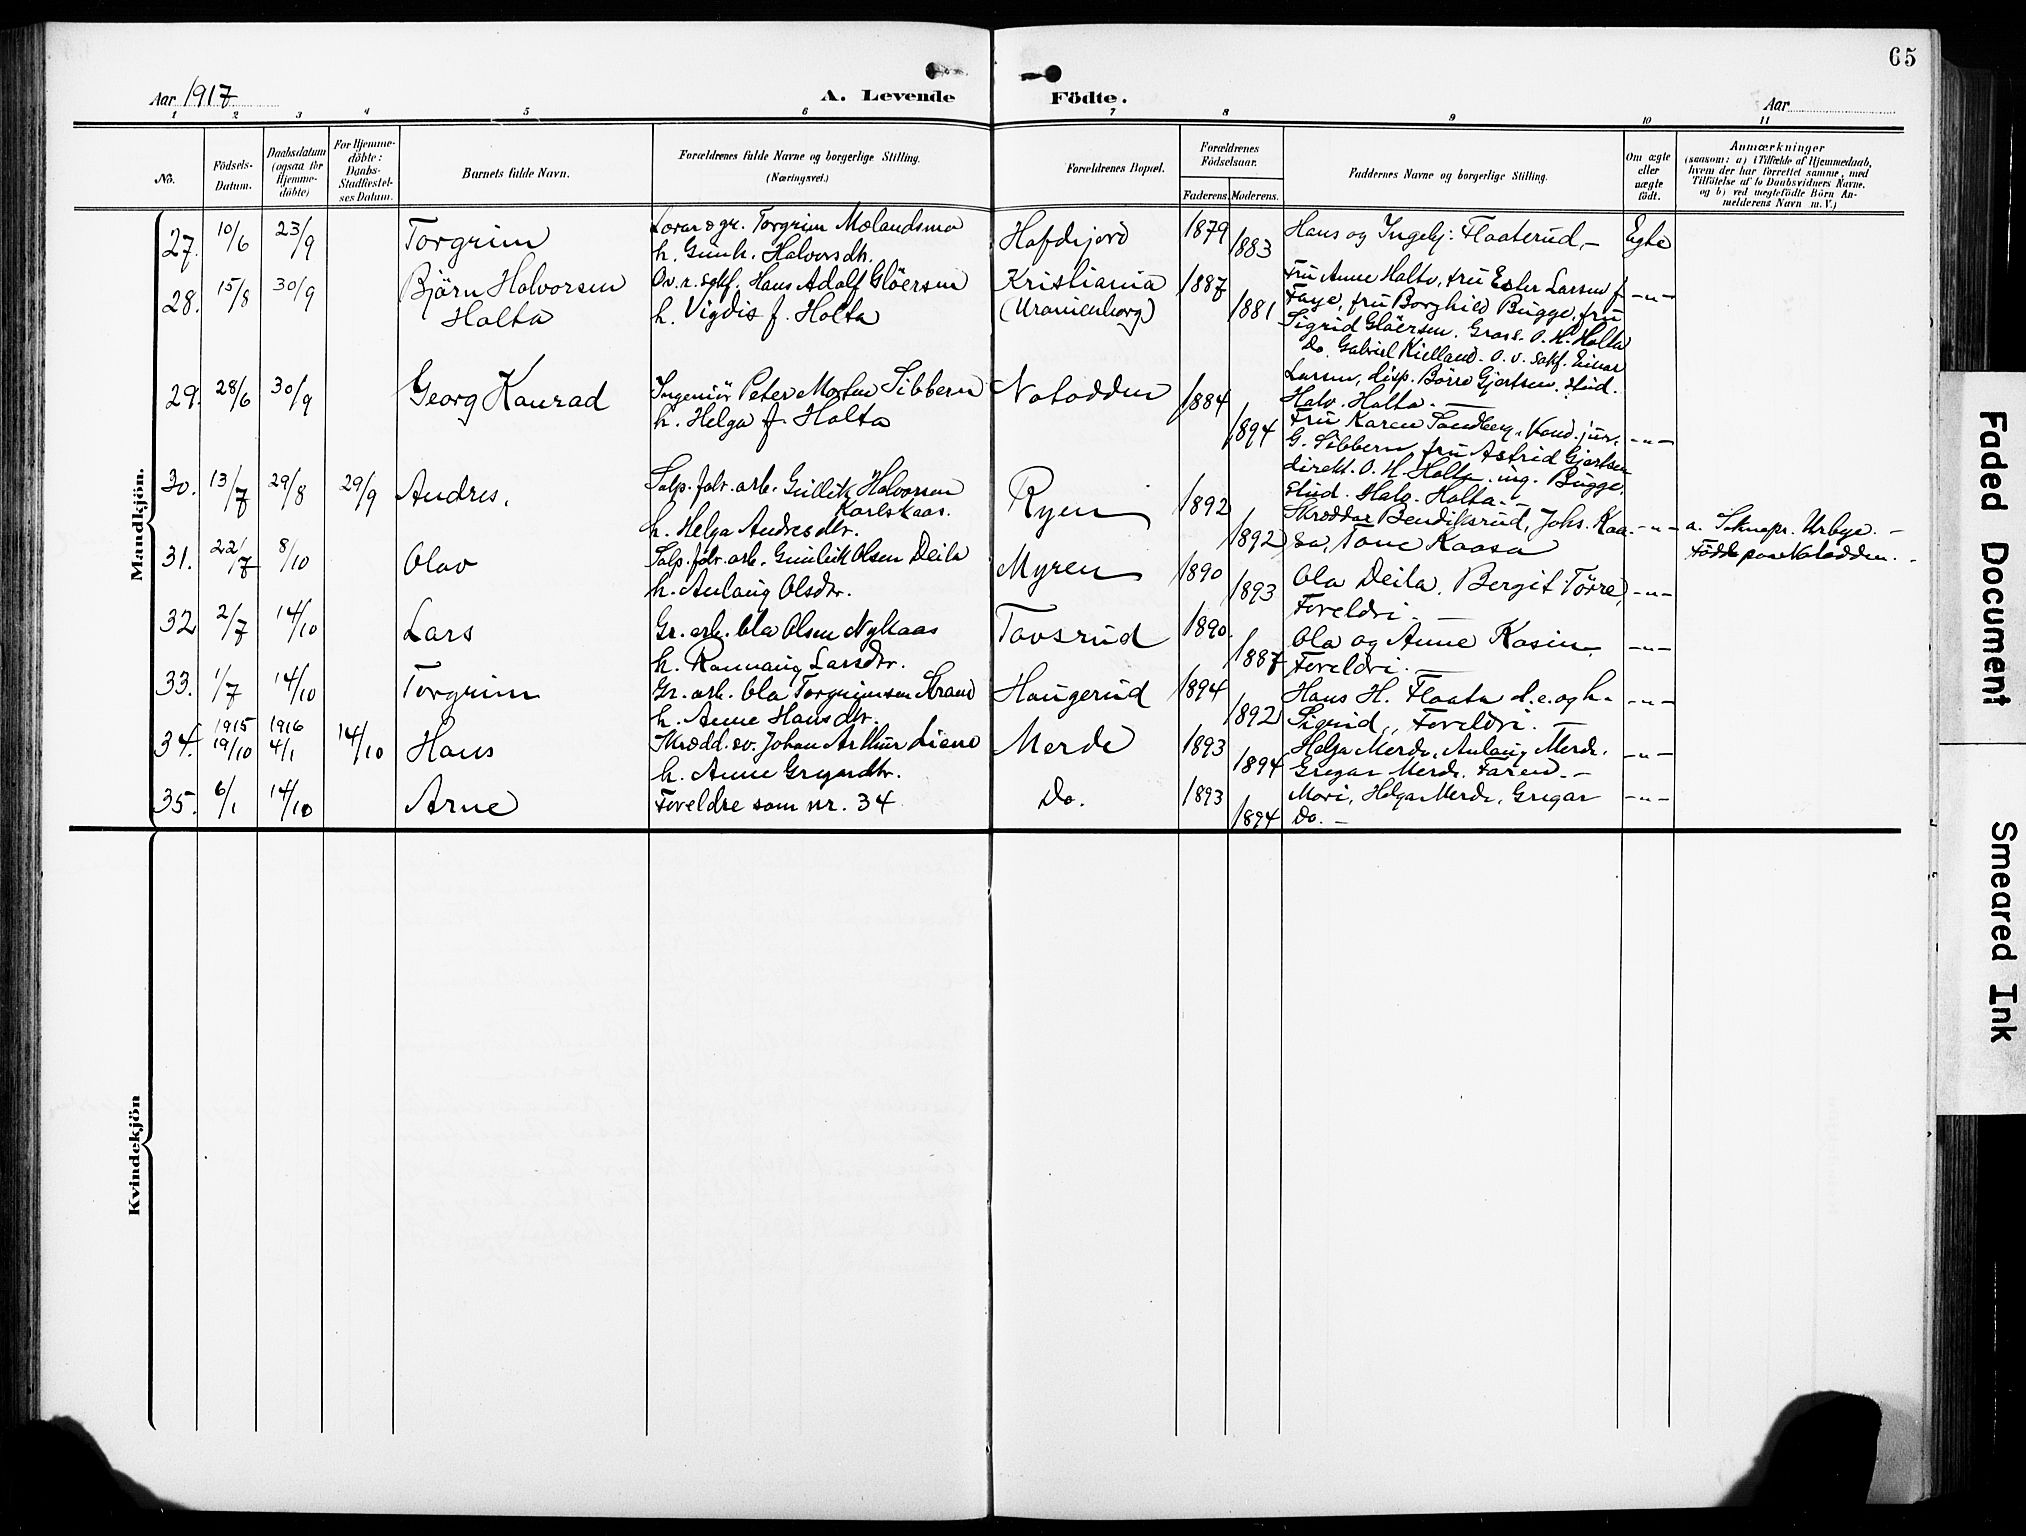 65
Aar 1917
A. Levende Födte.
Aar
1 2 3 4 5 6 7 8 9 10 11
No.
Födsels-Datum.
Daabsdatum (ogsaa for Hjemme-döbte)
For Hjemme-döbte: Daabs-Stadfæstel-ses Datum.
Barnets fulde Navn.
Forældrenes fulde Navne og borgerlige Stilling. (Næringsvei.)
Forældrenes Bopæl.
Forældrenes Födselsaar.
Faderens. Moderens.
Faddernes Navne og borgerlige Stilling.
Om ægte eller uægte födt.
Anmærkninger
(saasom: a) i Tilfælde af Hjemmedaab,
hvem der har forrettet samme, med
Tilföielse af to Daabsvidners Navne,
og b) ved uægtefödte Börn An-
melderens Navn m. V.)
Mandkjön.
27. 10/6 23/9 Torgrim
Torgrim Molandsmo
h. Gunh. Halvorsdtr.
1879 1883
Hans og Ingebj: Flaaterud, –
Egte
28. 15/8 30/9 Björn Halvorsen
Holta
Ov. r. sakf. Hans Adolf Glöersen
h. Vigdis f. Holta
Kristiania
(Uranienborg)
1887 1881
Fru Anne Holta, fru Ester Larsen f
Faye, fru Borghild Bugge, fru
Sigrid Glöersen. Gross. O. H. Holta
Do. Gabriel Kielland. O. r. sakf. Einar
Larsen, disp. Börre Gjertsen. stud.
Halv. Holta. –
–"–
29. 28/6 30/9 Georg Konrad
Ingeniör Peter Morten Sibbern
h. Helga f. Holta
Notodden
1884 1894
Fru Karen Sandberg, Kand. jur.
G. Sibbern, fru Astrid Gjertsen
direkt. O. H. Holta. ing. Bugge.
Stud. Halv. Holta. –
–"–
30. 13/7 29/8 29/9 Andres.
Salp. fabr. arb. Gullik Halvorsen
Karlskaas.
h. Helga Andresdtr.
Ryen
1892 1892
Skræddar Bendiksrud, Johs. Kaa-
sa, Tone Kaasa
–"–
a. Urbye. –
Födt paa Notodden. –
31. 22/7 8/10 Olav
Salp. fabr. arb. Gunleik Olsen Deila
h. Aslaug Olsdtr.
Myren
1890 1893
Ola Deila. Bergit Törre,
Foreldri. –
–"–
32 2/7 14/10 Lars
Gr. arb. Ola Olsen Nykaas
h. Rannaug Larsdtr.
Tovsrud
1890. 1887
Ola og Anne Kasin.
Foreldri. –
–"–
33. 1/7 14/10 Torgrim
Gr. arb. Ola Torgrimsen Strand
h. Anne Hansdtr.
Haugerud
1894 1892
Hans H. Flaata d. e. og h.
Sigrid, Foreldri. –
–"–
34. 1915 19/10 1916 4/1 14/10 Hans
Skrædd. sv. Johan Arthur Liane
h. Anne Gregardtr.
Merde
1893 1894
Helga Merde, Aslaug Merde.
Gregar Merde. Faren. –
–"–
35. 6/1 14/10 Arne
Foreldre som nr. 34
Do.
1893 1894
Mori, Helga Merde, Gregar
Do. –
–"–
Kvindekjön
Faded Document
Smeared Ink